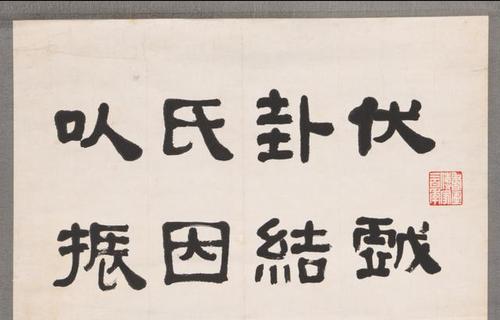 伏戲
卦結
氏因
以振